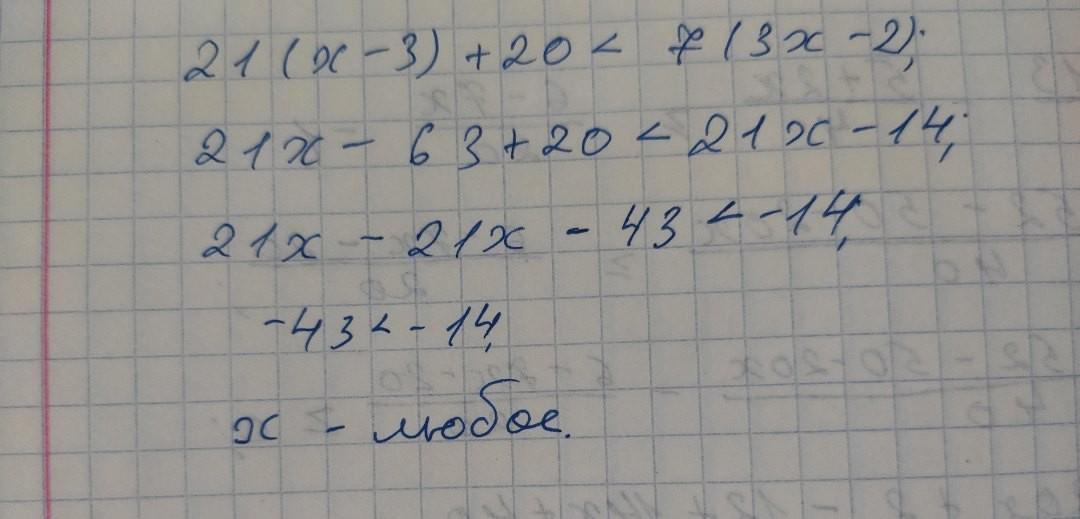 21(x-3)+20< 7(3x-2);
21x- 63+20<21x-14;
21x-21x-43<-14;
-43<-14,
x - любое.